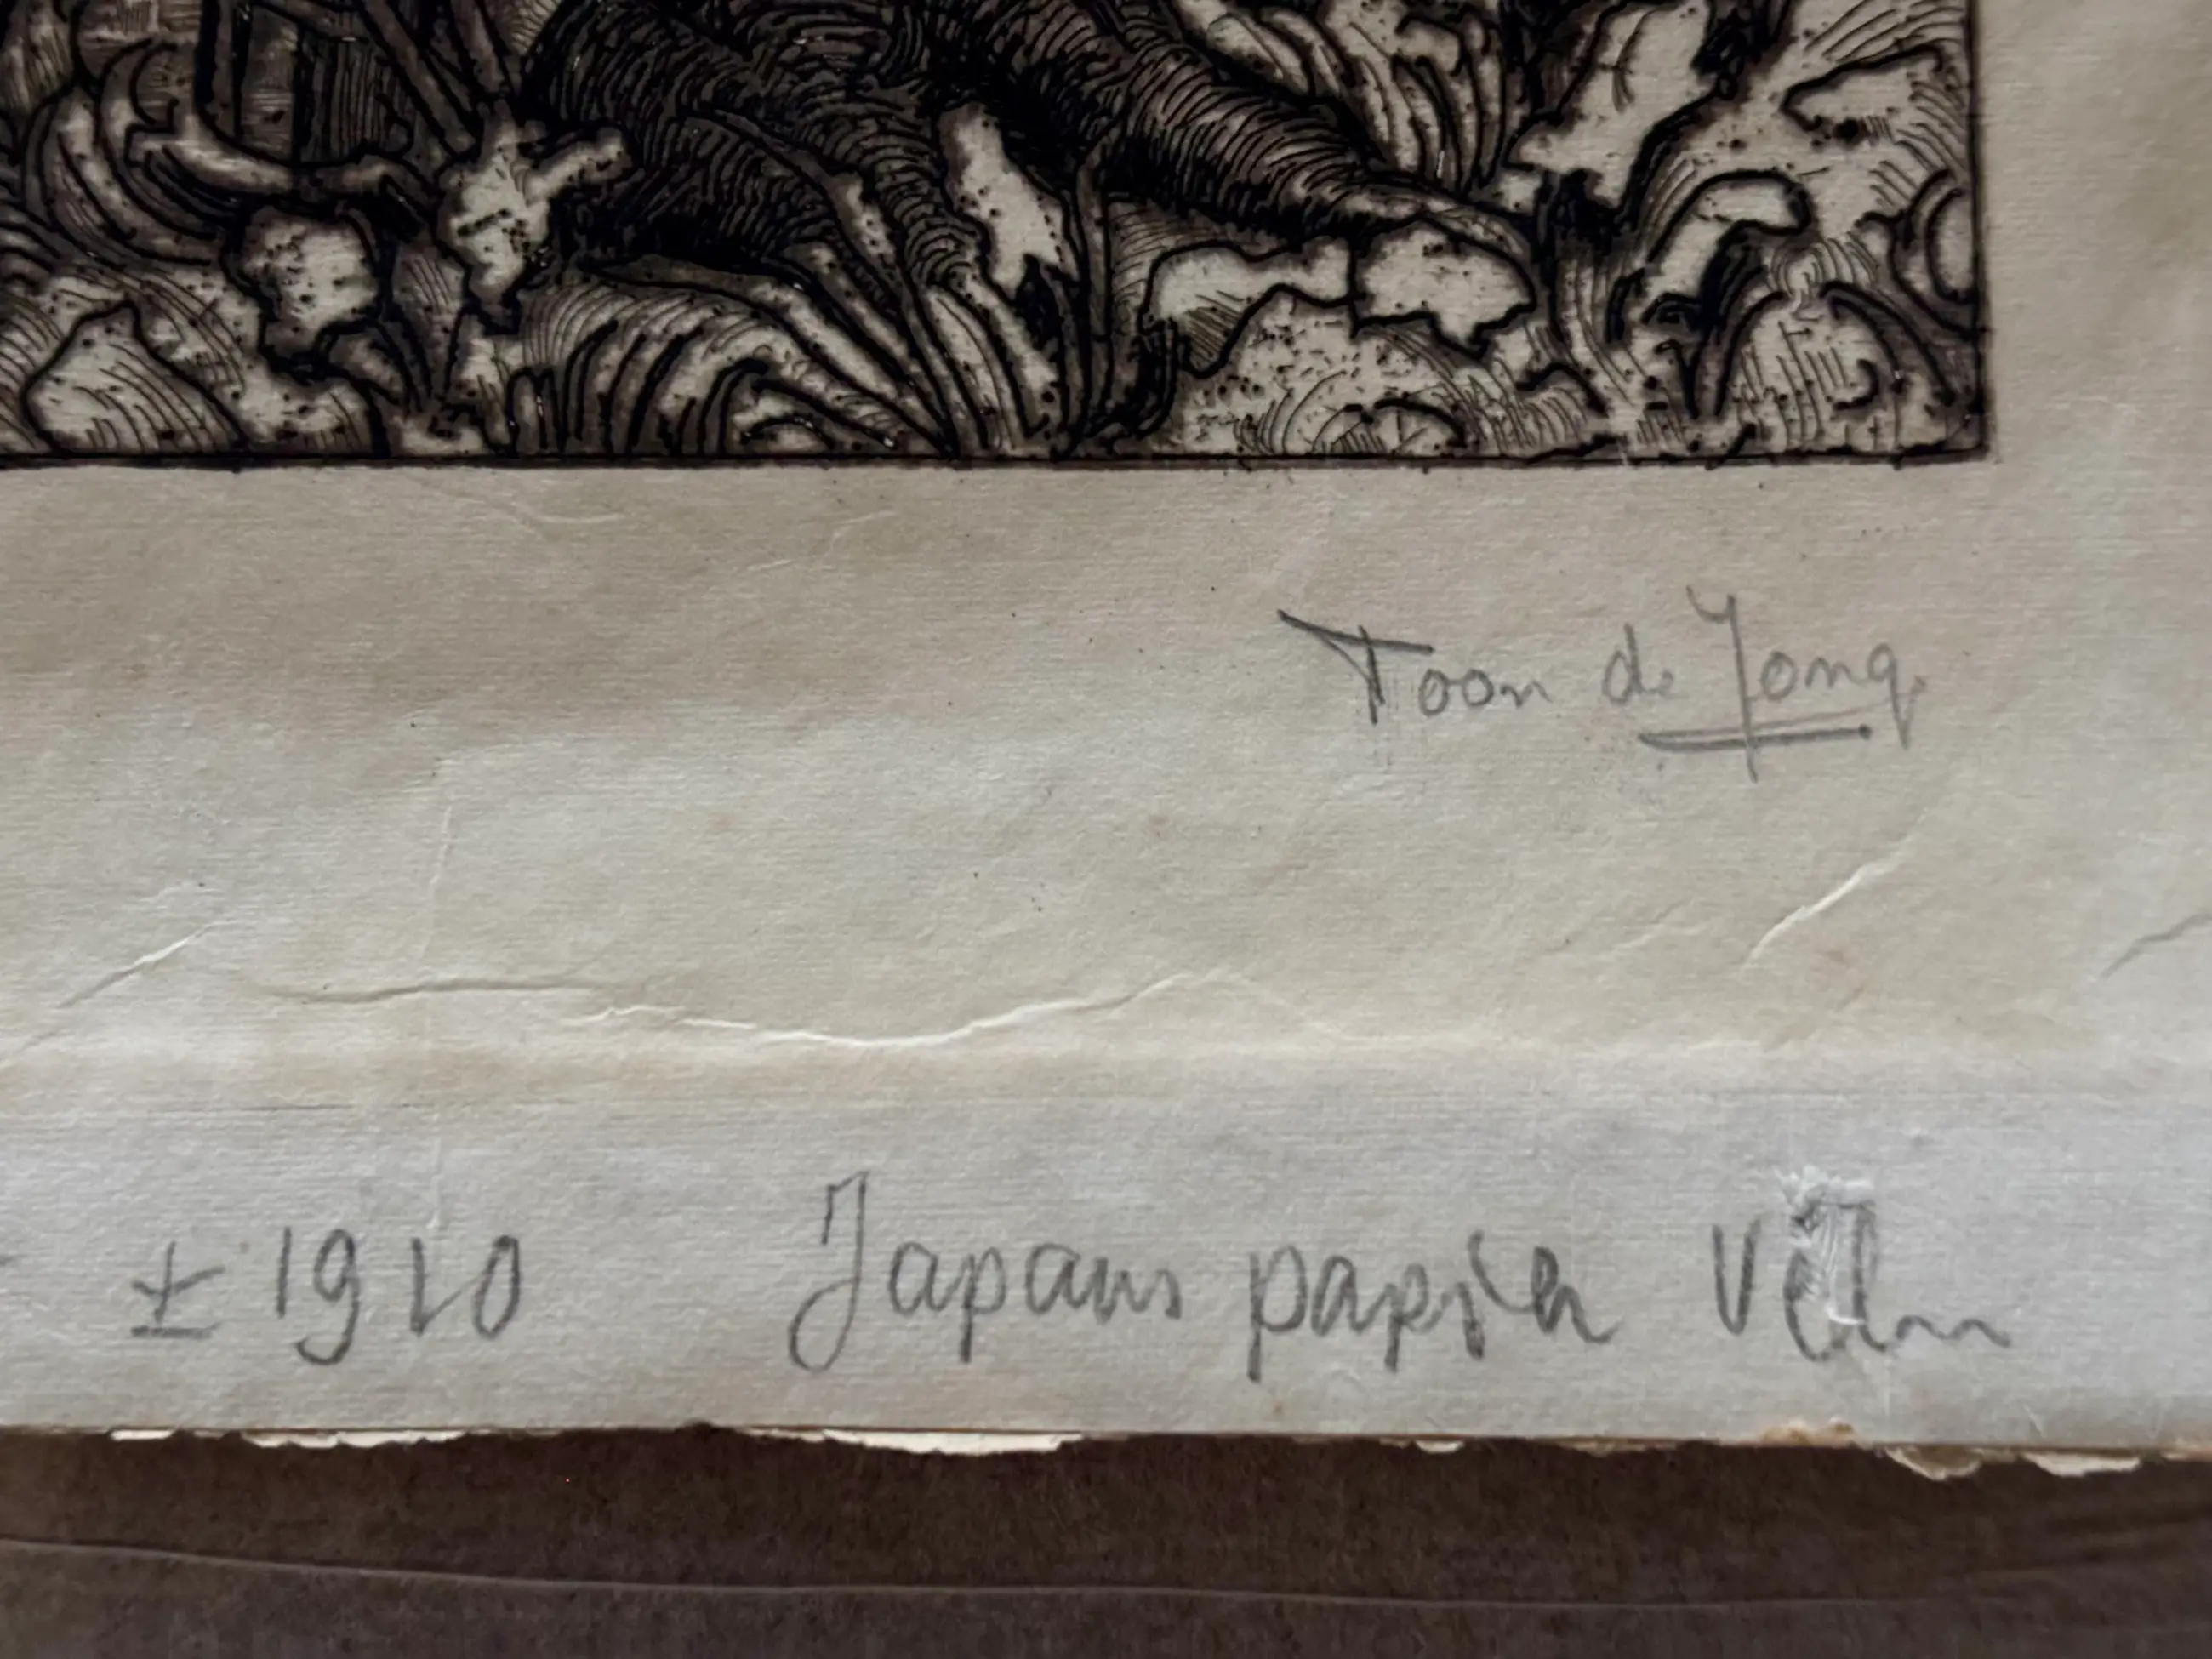 Toon de Jong
± 1910 Japans papier